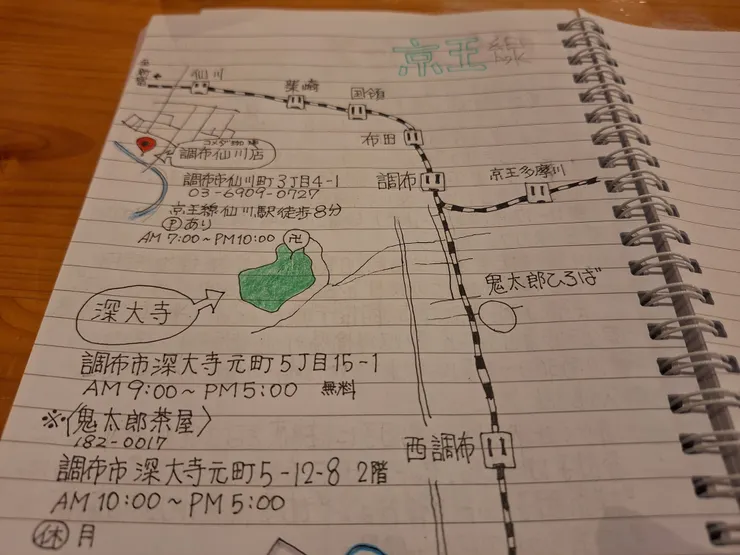 京王線
仙川
柴崎
国領
布田
調布
京王多摩川
調布仙川店
調布市仙川町3丁目4-1
03-6909-0727
京王線仙川駅徒歩8分
Ⓟあり
AM 7:00~PM10:00
卍
鬼太郎ひろば
深大寺
調布市深大寺元町5丁目15-1
AM 9:00~PM5:00 無料
※〈鬼太郎茶屋〉
182-0017
西調布
調布市深大寺元町5-12-8 2階
AM10:00~PM5:00
㊡月